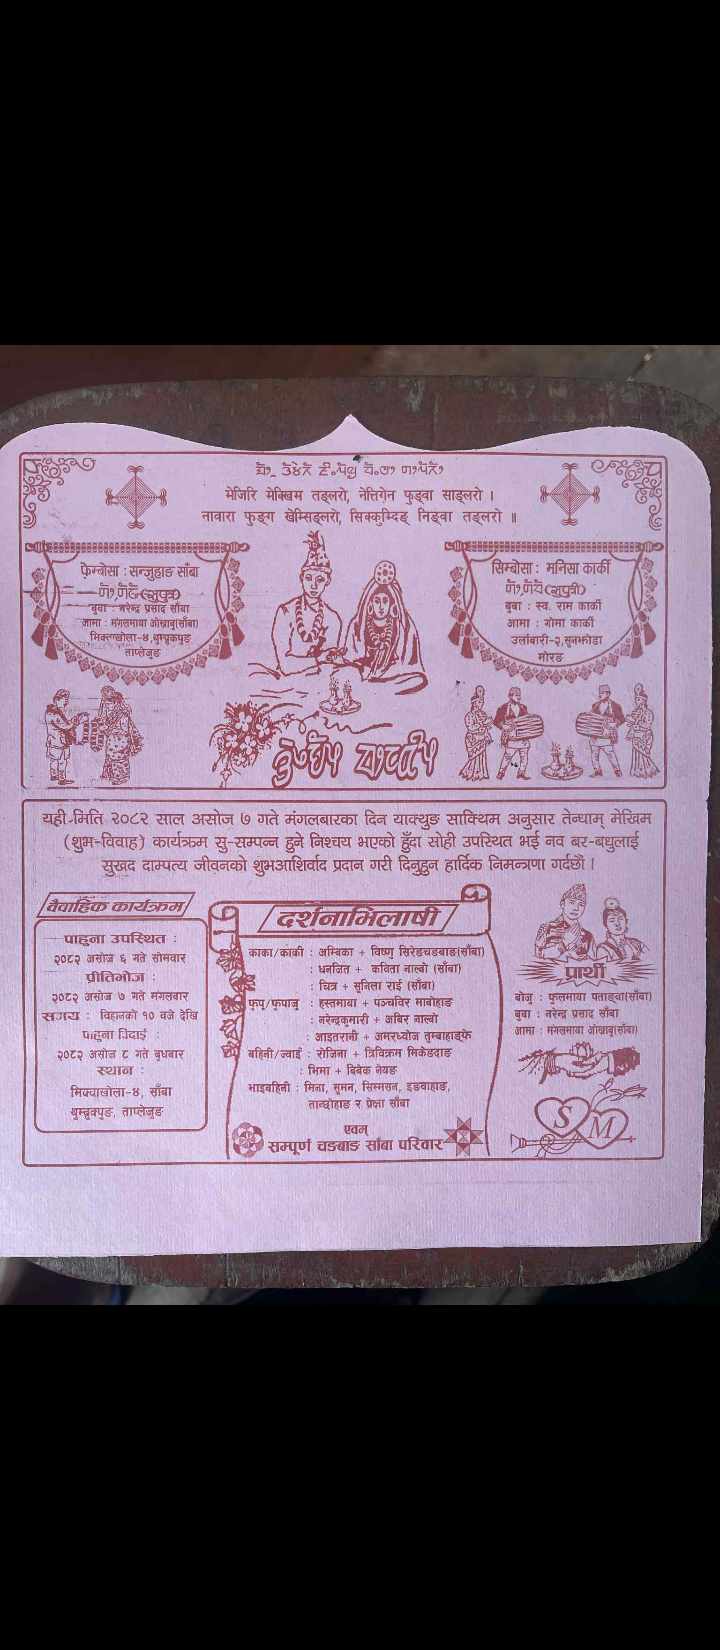 मेजिरि मेक्खिम तङ्लरो, नेत्तिगेन फुङ्वा साङ्लरो ।
नावारा फुङ्ग खेम्सिङ्लरो, सिक्कुम्दिङ् निङ्वा तङ्लरो ॥
फेम्बोसा : सन्जुहाङ साँबा
(सुपुत्र)
बुवा : नरेन्द्र प्रसाद साँबा
आमा : मंगलमाया ओखाबु(साँबा)
ताप्लेजुङ
सिम्बोसा : मनिसा कार्की
(सुपुत्री)
बुबा : स्व. राम कार्की
आमा : गोमा कार्की
उर्लाबारी-२,सुनझोडा
मोरङ
यही मिति २०८२ साल असोज ७ गते मंगलबारका दिन याक्थुङ साक्थिम अनुसार तेन्धाम् मेखिम
(शुभ-विवाह) कार्यक्रम सु-सम्पन्न हुने निश्चय भएको हुँदा सोही उपस्थित भई नव बर-बधुलाई
सुखद दाम्पत्य जीवनको शुभआशिर्वाद प्रदान गरी दिनुहुन हार्दिक निमन्त्रणा गर्दछौं ।
वैवाहिक कार्यक्रम
पाहुना उपस्थित :
२०८२ असोज ६ गते सोमवार
प्रीतिभोज :
२०८२ असोज ७ गते मंगलबार
समय : विहानको १० वजे देखि
पाहुना विदाई :
२०८२ असोज ८ गते बुधबार
स्थान :
मिक्वाखोला-४, साँबा
थुम्बुक्पुङ, ताप्लेजुङ
दर्शनाभिलाषी
काका/काकी : अम्बिका + विष्णु सिरेङचङबाङ(साँबा)
: धनजित + कविता नाल्बो (साँबा)
: चित्र + सुनिला राई (साँबा)
फुपु/फुपाजु : हस्तमाया + पञ्चविर माबोहाङ
: नरेन्द्रकुमारी + अबिर नाल्बो
: आइतरानी + अमरध्वोज तुम्बाहाङ्फे
बहिनी/ज्वाई : रोजिना + त्रिविक्रम मिकेङदाङ
: भिमा + बिबेक नेयङ
भाइबहिनी : मिना, सुमन, सिम्मसन, इङवाहाङ,
तान्छोहाङ र प्रेक्षा साँबा
एवम्
सम्पूर्ण चङबाङ साँबा परिवार
प्रार्थी
बोजु : फुलमाया पताङ्वा(साँबा)
बुबा : नरेन्द्र प्रसाद साँबा
आमा : मंगसमाया ओखाबु(साँबा)
S M